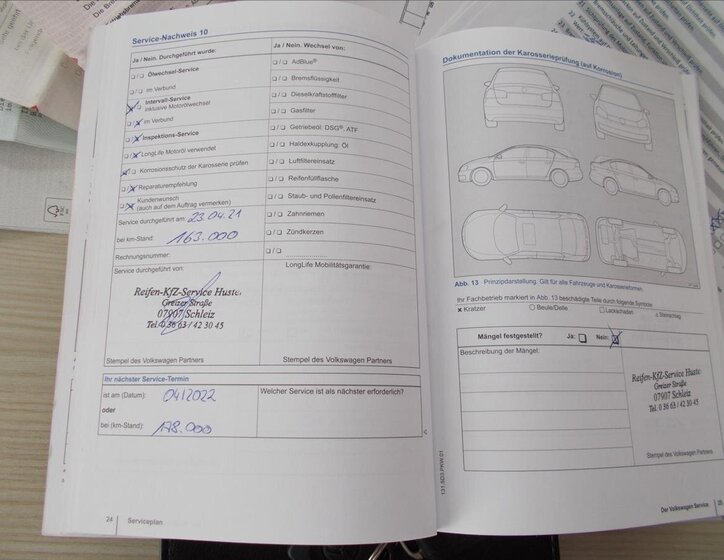 Service-Nachweis 10
Ja / Nein. Durchgeführt wurde:
❑/❑ Ölwechsel-Service
❑/❑ im Verbund
Intervall-Service
inklusive Motorölwechsel
im Verbund
Inspektions-Service
LongLife Motoröl verwendet
Korrosionsschutz der Karosserie prüfen
Reparaturempfehlung
Kundenwunsch
(auch auf dem Auftrag vermerken)
Service durchgeführt am: 23.04.21
bei km-Stand: 163.000
Rechnungsnummer:
Service durchgeführt von:
Reifen-KfZ-Service Huste
Greizer Straße
07907 Schleiz
Tel. 0 36 63 / 42 30 45
Stempel des Volkswagen Partners
Ja / Nein. Wechsel von:
❑/❑ AdBlue®
❑/❑ Bremsflüssigkeit
❑/❑ Dieselkraftstofffilter
❑/❑ Gasfilter
❑/❑ Getriebeöl: DSG®, ATF
❑/❑ Haldexkupplung: Öl
❑/❑ Luftfiltereinsatz
❑/❑ Reifenfüllflasche
❑/❑ Staub- und Pollenfiltereinsatz
❑/❑ Zahnriemen
❑/❑ Zündkerzen
❑/❑
LongLife Mobilitätsgarantie:
Stempel des Volkswagen Partners
Ihr nächster Service-Termin
ist am (Datum): 04/2022
oder
bei (km-Stand): 178.000
Welcher Service ist als nächster erforderlich?
24 Serviceplan
Dokumentation der Karosserieprüfung (auf Korrosion)
Abb. 13 Prinzipdarstellung. Gilt für alle Fahrzeuge und Karosserieformen.
Ihr Fachbetrieb markiert in Abb. 13 beschädigte Teile durch folgende Symbole:
× Kratzer ○ Beule/Delle □ Lackschaden Steinschlag
Mängel festgestellt? Ja: Nein:
Beschreibung der Mängel:
Reifen-KfZ-Service Huste
Greizer Straße
07907 Schleiz
Tel. 0 36 63 / 42 30 45
Stempel des Volkswagen Partners
131.5D3.PKW.01
Der Volkswagen Service